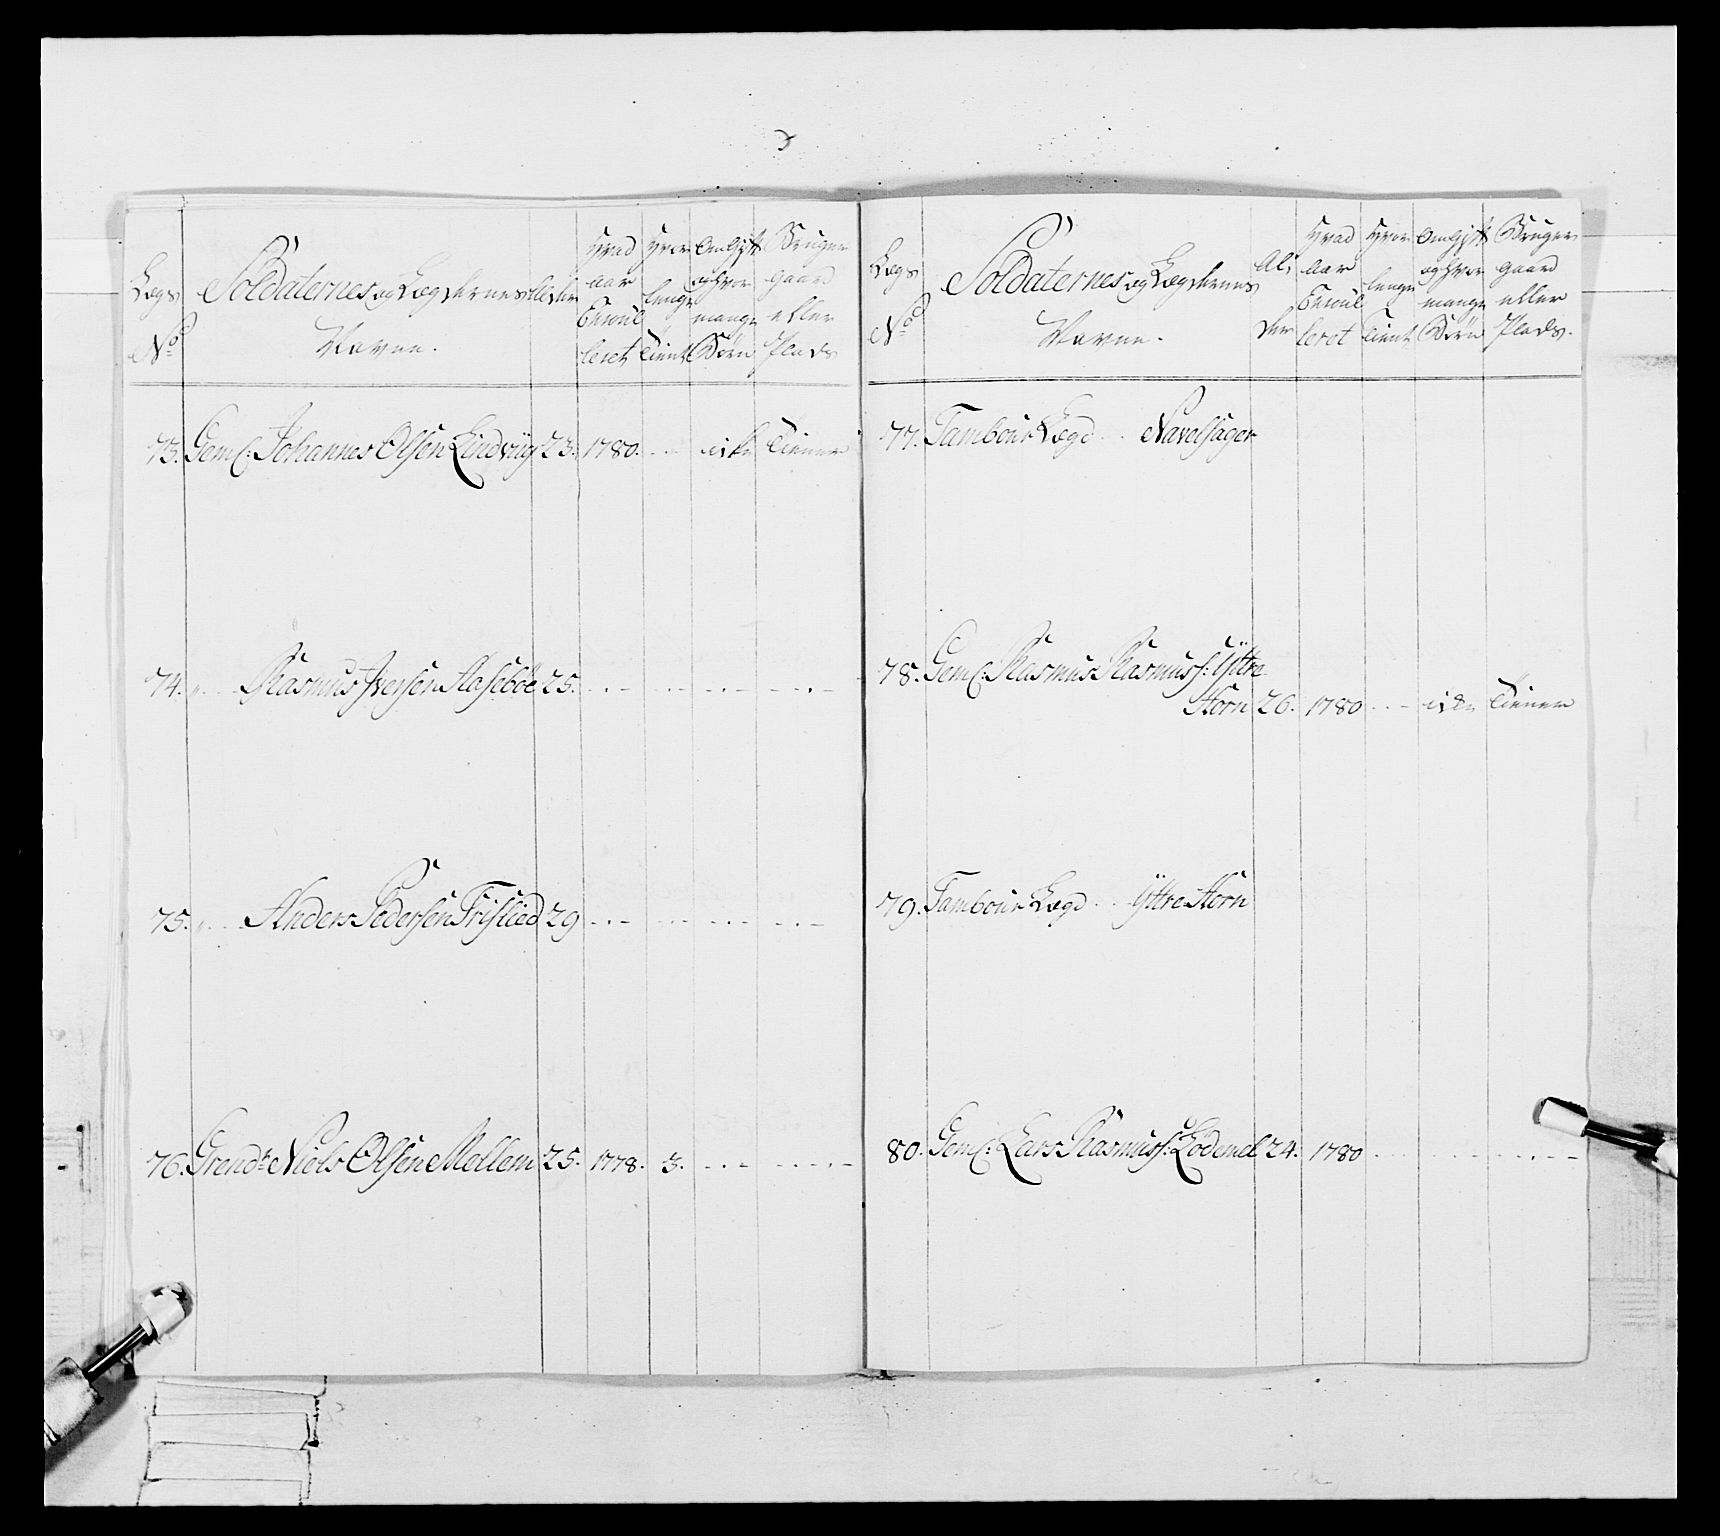 Lægs No
Soldaternes og Lægdernes Navne.
Alder
Hvad aar Enroulleret
Hvor lenge Tient
Om Gift og hvor mange Børn
Bruger gaard eller Plads
73. Gem(: Johannes Olsen Lindviig 23. 1780. .. - icke Tiener
74. " .. Rasmus Iversen Aasebøe 25. .. - .. - .. - .. -
75. " .. Anders Pedersen Frislied 29 .. - .. - .. - .. -
76. Grendr Niels Olsen Mellem 25. 1778. 3. .. - .. -
Lægs No
Soldaternes og Lægdernes Navne.
Alder
Hvad aar Enroulleret
Hvor lenge Tient
Om Gift og hvor mange Børn
Bruger gaard eller Plads.
77. Tambour Lægd .. Navelsager
78. Gem(: Rasmus Rasmuss: Ÿttre
Horn 26. 1780 .. - icke Tiener
79. Tambour Lægd .. Ÿttre Horn
80. Gem(: Lars Rasmuss: Lødemel 24. 1780 .. - .. - .. -